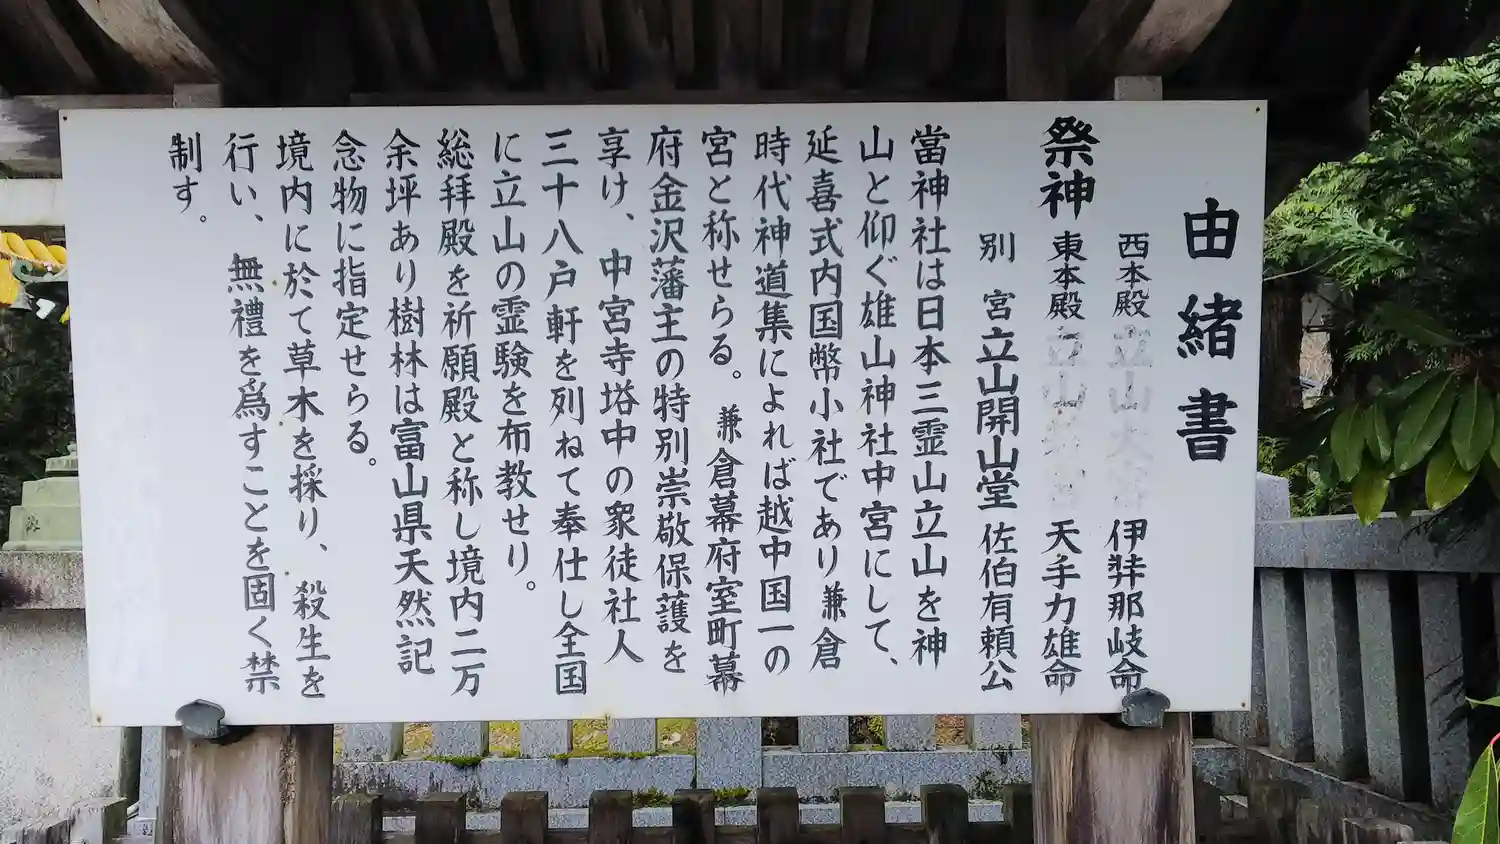 由緒書
西本殿 立山大宮 伊弉那岐命
祭神 東本殿 立山 宮 天手力雄命
別宮 立山開山堂 佐伯有頼公
當神社は日本三霊山立山を神
山と仰ぐ雄山神社中宮にして、
延喜式内国幣小社であり兼倉
時代神道集によれば越中国一の
宮と称せらる。兼倉幕府室町幕
府金沢藩主の特別崇敬保護を
享け、中宮寺塔中の衆徒社人
三十八戸軒を列ねて奉仕し全国
に立山の霊験を布教せり。
総拝殿を祈願殿と称し境内二万
余坪あり樹林は富山県天然記
念物に指定せらる。
境内に於て草木を採り、殺生を
行い、無禮を爲すことを固く禁
制す。